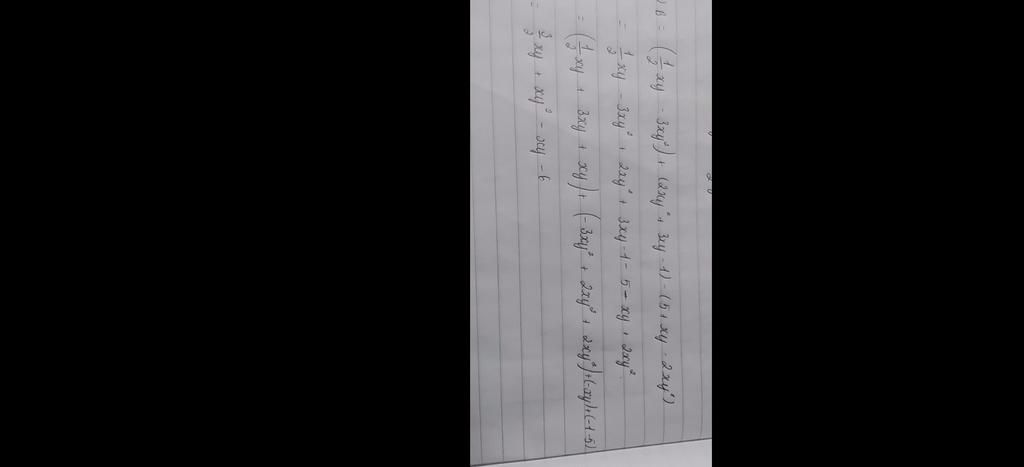 ) B = (1/2 xy - 3xy²) + (2xy² + 3xy - 1) - (5 + xy - 2xy²)
= 1/2 xy - 3xy² + 2xy² + 3xy - 1 - 5 - xy + 2xy²
= (1/2 xy + 3xy + xy) + (-3xy² + 2xy² + 2xy²) + (-xy) + (-1-5)
= 3/2 xy + xy² - xy - 6